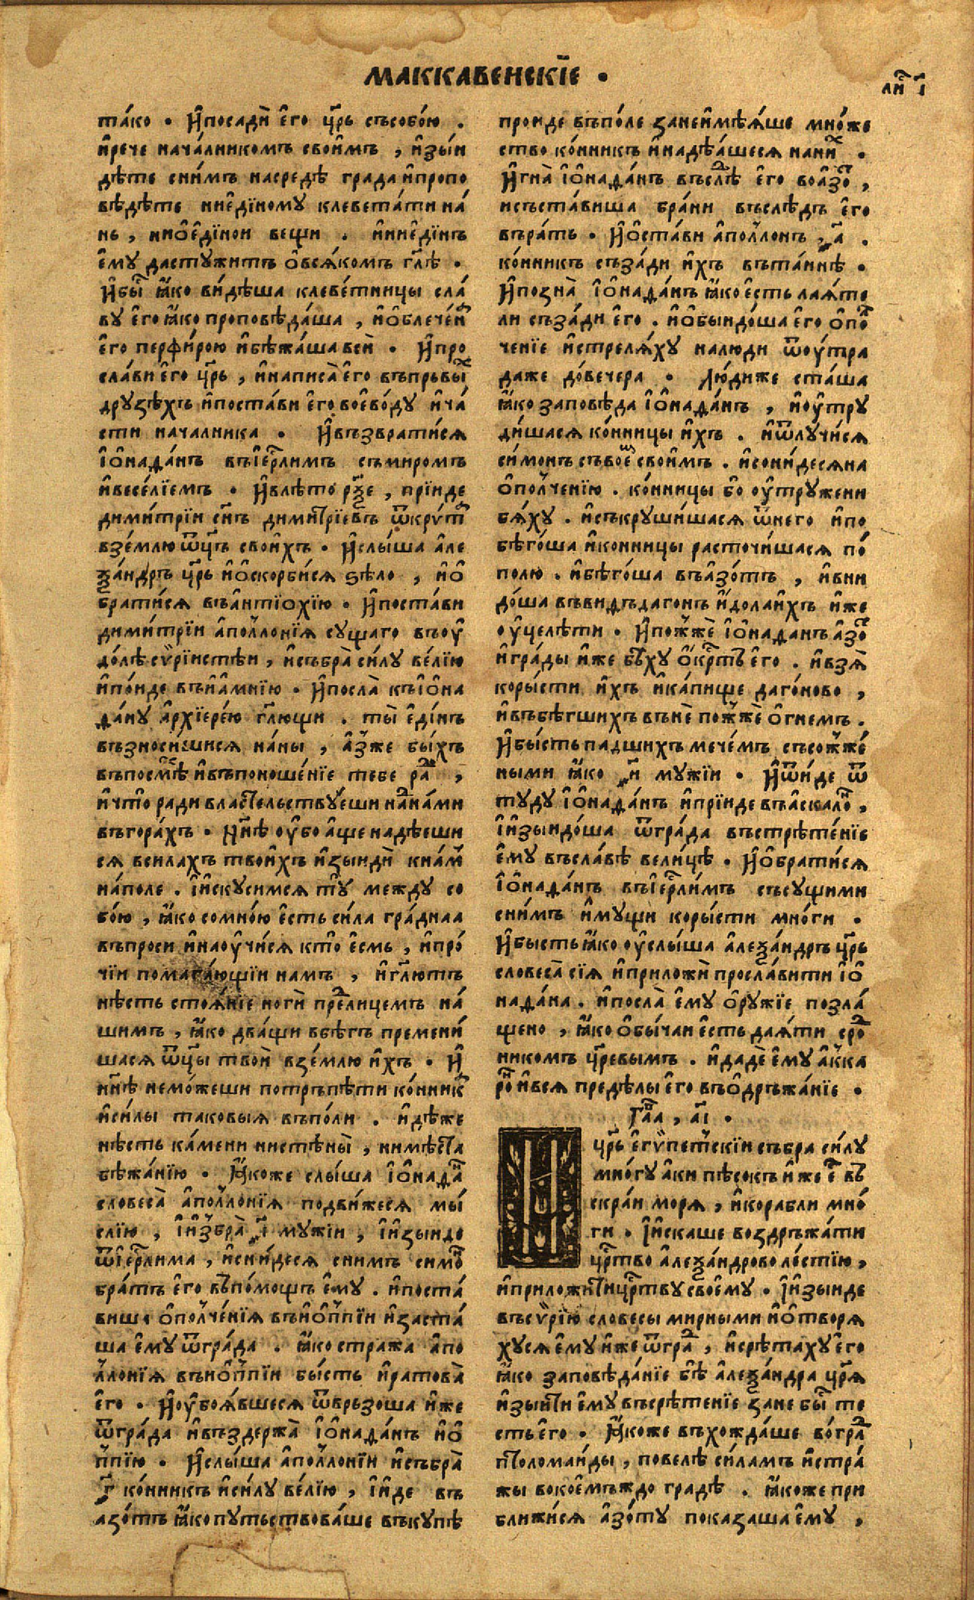 маккавеискїе .
ли҇ і҃
та́ко . И҆посадѝ є҆го цр҃ь съсобо́ю .
и҆рече нача́лникомъ свои҆мъ , и҆зы́и
дѣте сни́мъ насредѣ града и҆пропо
вѣдѣте ниє҆ди́ному клевета́ти на́
нь , ниѡ҆є҆ди́нои вещи . и҆ниє҆ди́нъ
є҆му дастужитъ ѡ҆вся́комъ гл҃ѣ .
И҆бы҇ ꙗ҆ко ви́дѣша клеве́тницы сла́
ву є҆го ꙗ҆ко проповѣ́даша , и҆ѡ҆блече́н
є҆го перфи́рою и҆бѣжа́ша всѝ . И҆про
сла́ви є҆го цр҃ь , и҆написа̀ є҆го въпрьвы҇
друзѣ́хъ и҆поста́ви є҆го вое҆во́ду и҆ча́
сти нача́лника . И҆възврати́ся
і҆ѡ҆нада́нъ въі҆єр҇лимъ съмиромъ
и҆весе́лїемъ . И҆влѣ́то рѯ҃е , прїиде
дими́трїи сн҃ъ дими́трїевъ ѿкри́т
взе́млю ѿц҃ъ свои́хъ . И҆слы́ша а҆ле
ѯа́ндръ цр҃ь и҆ѡ҆скорби́ся ѕѣло , и҆ѡ҆
брати́ся въа҆нтїо́хїю . И҆поста́ви
дими́трїи а҆поло́нїя су́щаго въоу҆
до́лѣ сѷри́истѣи , и҆събра̀ си́лу ве́лїю
и҆по́иде въи҆а҆мнїю . И҆посла̀ къі҆ѡ҆на
да́ну а҆рхїере́ю гл҃ющи . ты̀ є҆ди́нъ
възноси́шися на́ны , а҆́зже бы́хъ
въпосмѣ҇ и҆въпоноше́нїе тебе ра҇ ,
и҆что̀ ради власте́льствуеши на́нами
въгора́хъ . Нн҃ѣ оу҆бо а҆ще надѣ́еши
ся всилахъ твои́хъ и҆зыидѝ кна́м
на́поле . и҆и҆скуси́мся ту̀ между со
бо́ю , ꙗ҆ко сомно́ю є҆сть си́ла гра́днаа
въпроси и҆наоу҆чи́ся кто̀ є҆смь , и҆про́
чїи помага́ющїи намъ , и҆гл҃ютъ
нѣсть стоя́нїе ноги пред̾лице́мъ на́
шимъ , ꙗ҆ко два́щи вбѣгъ премени́
шася ѿц҃ы твоѝ взе́млю и҆хъ . И҆
нн҃ѣ немо́жеши потръпѣ́ти ко́нник
и҆си́лы таковыя въпо́ли . и҆дѣ́же
нѣсть ка́мени нистѣны̀ , нимѣ́ста
бѣжа́нїю . Ꙗ҆коже слы́ша і҆ѡ҆нада
словеса̀ а҆поло́нїя подви́жеся мы́
слїю , и҆и҆збра̀ ҂і҃ мужїи , и҆и҆зы́идо
ѿі҆єр҇лима , и҆сни́деся снимъ симо
братъ є҆го въпо́мощъ є҆му . и҆поста́
више ѡ҆полче́нїя въи҆ѡ҆ппїи и҆заста́
ша є҆му ѿгра́да . ꙗ҆ко стража а҆по
ло́нїя въи҆ѡ҆ппїи бы́сть и҆ратова̀
є҆го . И҆оу҆боя́вшеся ѿврьзоша и҆же
ѿгра́да и҆въздержа̀ і҆ѡ҆нада́нъ и҆ѡ҆
ппїю . И҆слы́ша а҆поло́нїи и҆събра̀
҂г҃ ко́нникъ и҆си́лу ве́лїю , и҆и҆де въ
азо́тъ ꙗ҆копутьствова́ше въкупѣ
проиде въпо́ле занеи҆мѣ́яше мно́же
ство ко́нникъ и҆надѣ́ашеся нани҇ .
И҆гна̀ і҆ѡ҆нада́нъ въслѣ҇ є҆го воа҆зо҇ ,
исъста́виша бра́ни въслѣдъ є҆го
въра́ть . И҆ѡ҆ста́ви а҆поло́нъ ҂а҃ .
ко́нникъ съза́ди и҆хъ въта́инѣ .
И҆позна̀ і҆ѡ҆нада́нъ ꙗ҆коє҆сть лая́те
ли съза́ди є҆го . и҆ѡ҆быидо́ша є҆го ѡ҆по
ченїе и҆стреля́ху налюди ѿоу҆тра
даже до́вечера . Лю́диже ста́ша
ꙗ҆ко заповѣ́да і҆ѡ҆нада́нъ , и҆оу҆тру
ди́шася ко́нницы и҆хъ . и҆ѿлучи́ся
си́монъ съвое҆ свои҆мъ . и҆сони́десяна
ѡ҆полче́нїю . ко́нницы бо оу҆тружени
бя́ху . и҆съкруши́шася ѿнего и҆по
бѣго́ша и҆ко́нницы расточи́шася по́
полю . и҆бѣго́ша въа҆зо́тъ , и҆вни
до́ша въвидъдагонъ и҆долаи҆хъ и҆же
оу҆целѣ́ти . И҆пожжѐ і҆ѡ҆нада́нъ а҆зо҇
и҆гра́ды и҆же бѣ́ху ѡ҆кр҇тъ є҆го . и҆взя̀
коры́сти и҆хъ и҆ка́пище даго́ново ,
и҆въбѣ́гшихъ вънѐ пожжѐ ѡ҆гнемъ .
И҆бы́сть па́дшихъ мече́мъ съсожже́
ными ꙗ҆ко ҂и҃ му́жїи . И҆ѿи́де ѿ
ту́ду і҆ѡ҆нада́нъ и҆прїиде въа҆скало҇ ,
и҆и҆зыидо́ша ѿгра́да въстрѣте́нїе
є҆му въсла́вѣ вели́цѣ . И҆ѡ҆брати́ся
і҆ѡ҆нада́нъ въі҆єр҇лимъ съсущими
сни́мъ и҆му́щи коры́сти мно́ги .
И҆бы́сть ꙗ҆ко оу҆слы́ша а҆леѯа́ндръ цр҃ь
словеса̀ сїя и҆приложѝ просла́вити і҆ѡ҆
нада́на . и҆посла̀ є҆му ѡ҆ружїе позла́
щено , ꙗ҆ко ѡ҆бы́чаи є҆сть дая́ти сро
никомъ цр҃евымъ . и҆дадѐ є҆му а҆кка
ро҇ и҆вся предѣ́лы є҆го въѡ҆дръжа́нїе .
Гла҃ , а҃і .
И цр҃ь є҆гѷ́петскїи събра си́лу
мно́гу а҆ки пѣсо́къ и҆же є҇ въ
скра́и моря , и҆корабли мно́
ги . и҆и҆скаше воздръжа́ти
цр҇тво а҆леѯа́ндрово ле́стїю ,
и҆приложи́ти цр҇тву своє҆му . и҆и҆зыиде
въсѷрїю словесы ми́рными и҆ѡ҆творя́
хуся є҆му и҆же ѿгра҇ , и҆срѣта́ху є҆го
ꙗ҆ко заповѣ́данїе бѣ̀ а҆леѯа́ндра цр҃я
и҆зыи́ти є҆му въсрѣ́тенїе зане бы҇ те
сть є҆го . Ꙗ҆коже въхожда́ше вогра҇
птоломаи́ды , повелѣ̀ си́ламъ и҆стра́
жы вокое́мъждо градѣ . ꙗ҆коже при
бли́жися а҆зо́ту показаша є҆му ,